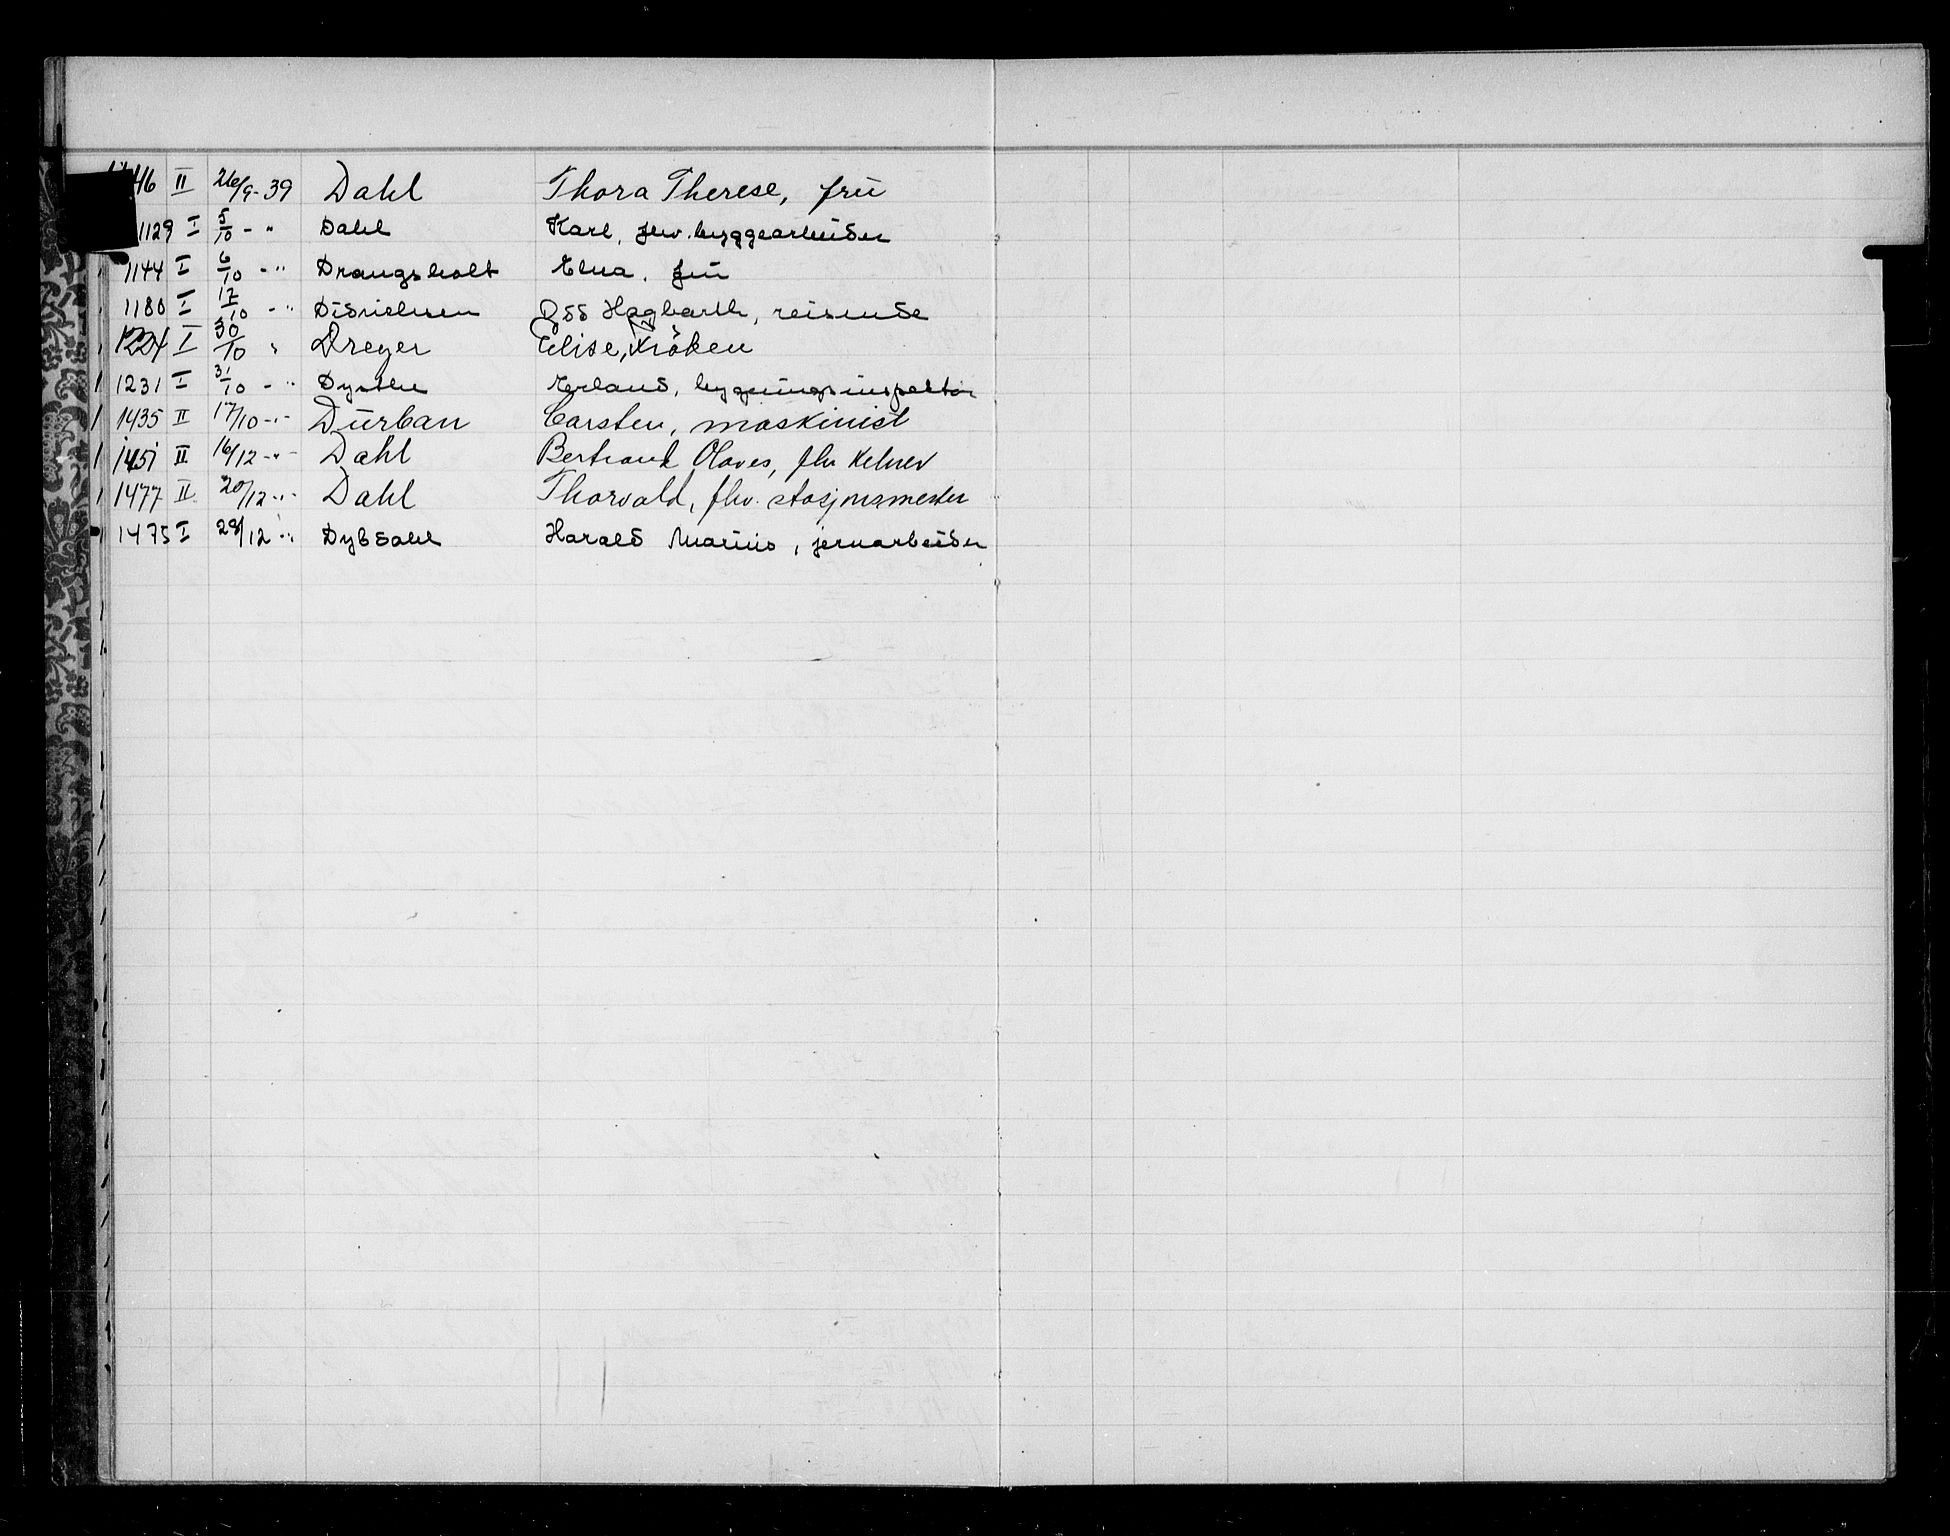 46 II 26/9-39 Dahl Thora Therese, frü
1129 I 5/10 - " Dahl Karl, fhv. byggearbeider
1144 I 6/10 - " Drangsholt Elna, frü
1180 I 17/10 - " Didrichsen Odd Hagbarth, reisende
1224 I 30/10 " Dreyer Elise, frøken
1231 I 31/10 - " Dysthe Erland, bygningsinspektør
1435 II 17/10 - " - Dürban Carsten, maskinist
1451 II 16/12 - " - Dahl Bertrand Olaves, fhv kelner
1477 II 20/12 - " - Dahl Thorvald, fhv. stasjonsmester
1475 I 28/12 - " Dybdahl Harald Marius, jernarbeider